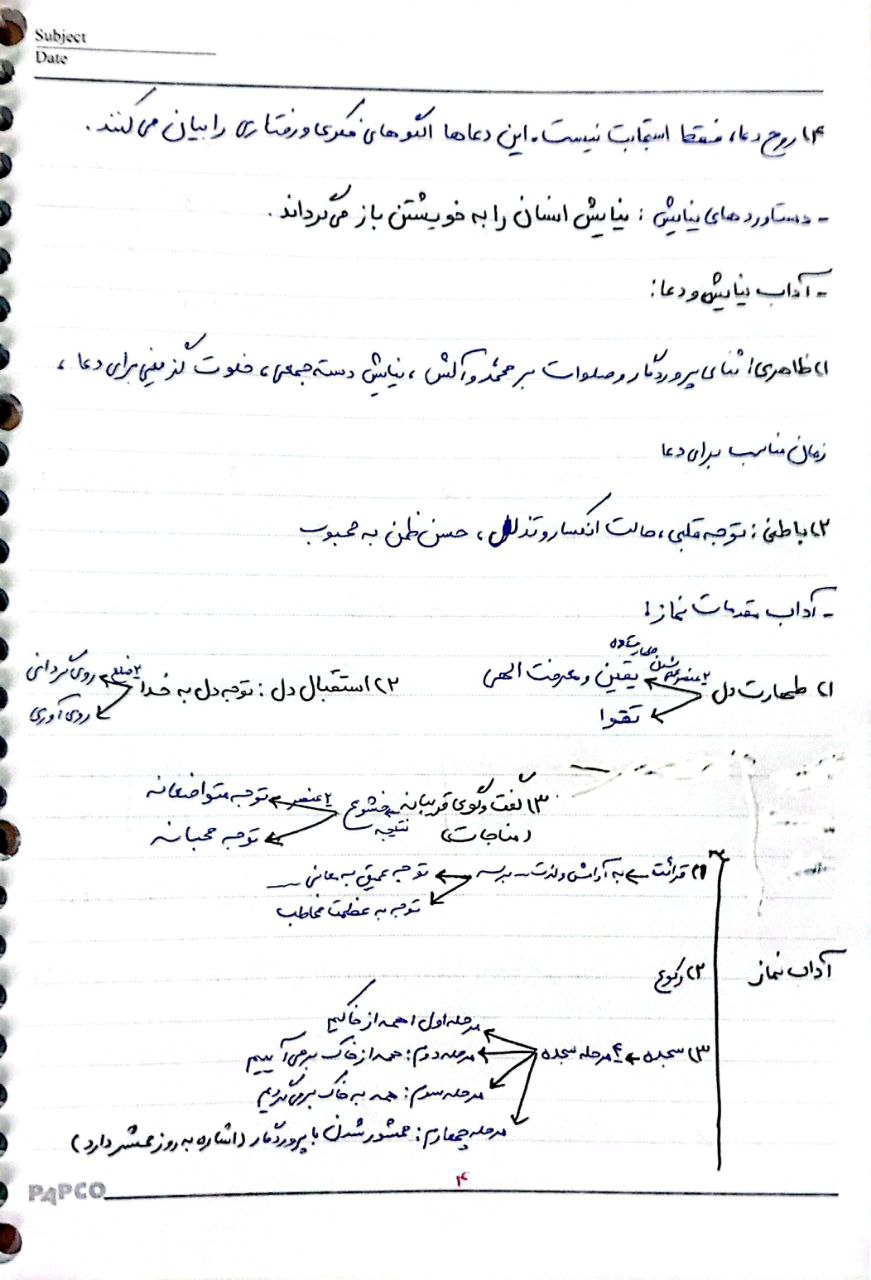 Subject
Date
۴) روح دعا، فقط استجابت نیست. این دعاها الگوهای فکری و رفتاری را بیان می‌کنند.
- دستاوردهای نیایش: نیایش انسان را به خویشتن باز می‌گرداند.
- آداب نیایش و دعا:
۱) ظاهری: ثنای پروردگار و صلوات بر محمد و آلش، نیایش دسته جمعی، خلوت گزینی برای دعا،
زمان مناسب برای دعا
۲) باطنی: توجه قلبی، حالت انکسار و تذلل، حسن ظن به محبوب
- آداب مقدمات نماز:
۱) طهارت دل ۲ عنصر یقین و معرفت الهی
تقوا
۲) استقبال دل: توجه دل به خدا ۲ ضلع روی گردانی
روی آوری
۳) گفت و گوی قریبانه (مناجات) نتیجه خشوع ۲ عنصر توجه متواضعانه
توجه محبانه
آداب نماز
۱) قرائت ← به آرامش و لذت برسه توجه عمیق به معانی
توجه به عظمت مخاطب
۲) رکوع
۳) سجده ← ۴ مرحله سجده
مرحله اول: همه از خاکیم
مرحله دوم: همه از خاک برمی‌آییم
مرحله سوم: همه به خاک برمی‌گردیم
مرحله چهارم: محشور شدن با پروردگار (اشاره به روز محشر دارد)
۴
PAPCO